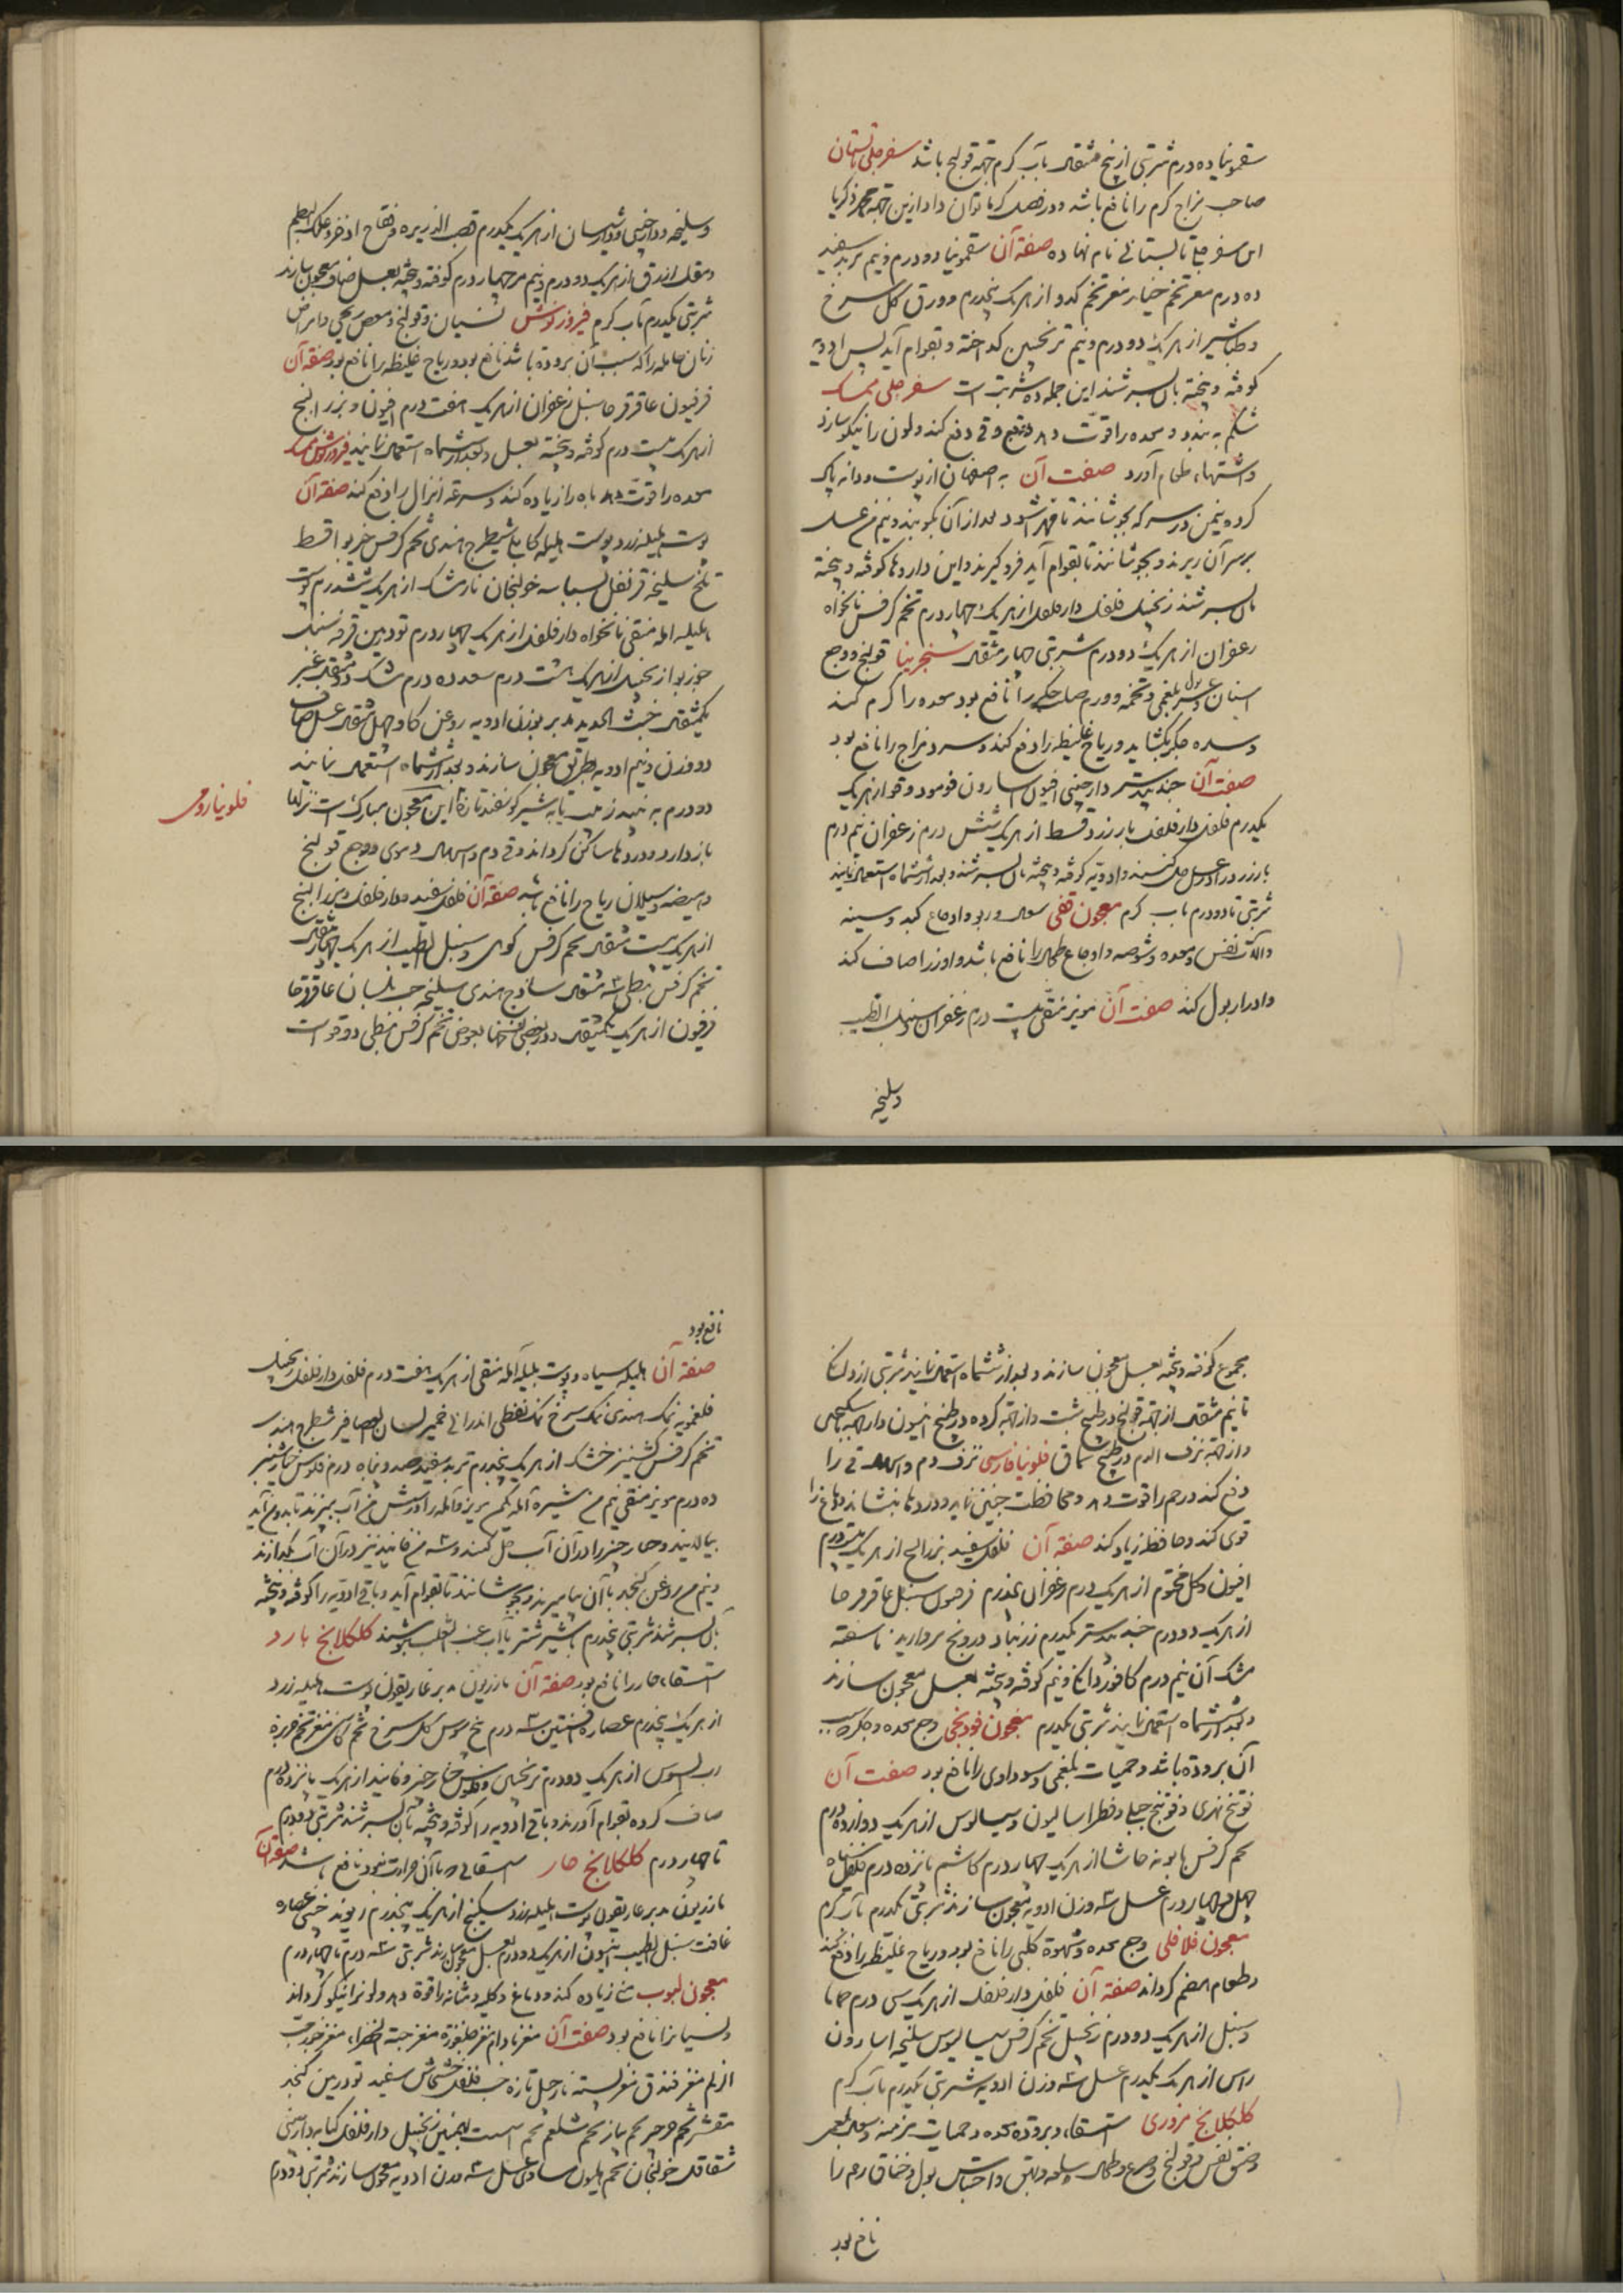 سقمونیا ده درم شربتی از پنج مثقال بآب گرم جهة قولنج باشد سفرجلی تابستان
صاحب مزاج گرم را نافع باشد و در فصل گرما توان داد ازین جهة محمد زکریا
این سفرجلی تابستانی نام نهاده صفة آن سقمونیا دو درم و نیم تربد سفید
ده درم مغز تخم خیار مغز تخم کدو از هر یک پنجدرم و ورق گل سرخ
و طباشیر از هر یک دو درم و نیم ترنجبین گداخته و بقوام آید پس ادویه
کوفته و بیخته بآن بسرشند این جمله ده شربت است سفرجلی ممسک
شکم به بندد و معده را قوّت دهد و قی دفع کند و لون را نیکو سازد
و اشتهاء طعام آورد صفت آن به اصفهان از پوست و دانه پاک
کرده یکمن در سرکه بجوشانند تا مهرا شود بعد از آن بکوبند و نیم من عسل
بر سر آن ریزند و بجوشانند تا بقوام آید فرو گیرند و این داروها کوفته و بیخته
بآن بسرشند زنجبیل فلفل دارفلفل از هر یک چهار درم تخم کرفس نانخواه
زعفران از هر یک دو درم شربتی چهار مثقال سنجرینا قولنج و وجع
اسنان و عسر بول بلغمی و تخمه و ورم صلب جگر را نافع بود معده را گرم کند
و سده جگر بگشاید و ریاح غلیظه را دفع کند و سرد مزاج را نافع بود
صفت آن جندبیدستر دارچینی افیون اسارون فو مو دوقو از هر یک
یکدرم فلفل دارفلفل بارزد قسط از هر یک شش درم زعفران نیم درم
بارزد در عسل حل کنند و ادویه کوفته و بیخته بآن بسرشند و بعد از ششماه استعمال نمایند
شربتی تا دو درم بآب گرم معجون قفی سعال و ربو و اوجاع کبد و سینه
و آلات نفس و معده و شوصه و اوجاع طحال را نافع باشد و آواز را صاف کند
و ادرار بول کند صفت آن مویز منقّی بیست درم زعفران سنبل الطیب
و سلیخه
و سلیخه و دارچینی و دارشیشعان از هر یک یکدرم قصب الذریره و فقاح اذخر و علک البطم
و مقل ازرق از هر یک دو درم و نیم مر چهار درم کوفته و بیخته بعسل صاف معجون سازند
شربتی یکدرم بآب گرم فیروزنوش نسیان و قولنج و مغص ریحی و امراض
زنان حامله را که سبب آن برودة باشد نافع بود و ریاح غلیظه را نافع بود صفة آن
فرفیون عاقرقرحا سنبل زعفران از هر یک هفت درم افیون و بزر البنج
از هر یک بیست درم کوفته و بیخته بعسل و بعد از ششماه استعمال نمایند فیروزنوش ممسک
معده را قوّت دهد باه را زیاده کند و سرعة انزال را دفع کند صفة آن
پوست هلیله زرد پوست هلیله کابلی شیطرج هندی تخم کرفس خربوا قسط
تلخ سلیخه قرنفل بسباسه خولنجان نارمشک از هر یک ششدرم پوست
بلیله امله منقی نانخواه دارفلفل از هر یک چهار درم تودرین قرفه سنبل
جوزبوا زنجبیل از هر یک هشت درم سعد ده درم مشک دو مثقال عنبر
یکمثقال خبث الحدید مدبر بوزن ادویه روغن گاو چهل مثقال عسل صاف
دو وزن و نیم ادویه بطریق معجون سازند و بعد از ششماه استعمال نمایند
فلونیا رومی
دو درم به نبیذ زبیب یا به شیر گوسفند تازه این معجون مبارک است نزلها
باز دارد و دردها ساکن گرداند و قی دم و اسهال دموی و وجع قولنج
و هیضه و سیلان ریاح را نافع باشد صفة آن فلفل سفید و دارفلفل و بزر البنج
از هر یک بیست مثقال تخم کرفس کوهی و سنبل الطیب از هر یک چهار مثقال
تخم کرفس نبطی سه مثقال ساذج هندی سلیخه حب بلسان عاقرقرحا
فرفیون از هر یک یکمثقال و در بعضی نسخها بعوض تخم کرفس نبطی دوقو است
مجموع کوفته و بیخته بعسل معجون سازند و بعد از ششماه استعمال نمایند شربتی از دانگی
تا نیم مثقال از جهة قولنج در طبیخ شبت و از جهة گرده در طبیخ انیسون و از جهة
و از جهة نزف الدم در طبیخ سماق فلونیا فارسی نزف دم و اسهال قی را
دفع کند و رحم را قوت دهد و محافظت جنین نماید و دردها بنشاند و دماغ را
قوی کند و حافظه زیاد کند صفة آن فلفل سفید بزر البنج از هر یک بیستدرم
افیون و گل مختوم از هر یک ده درم زعفران پنجدرم فرفیون سنبل عاقرقرحا
از هر یک دو درم جندبیدستر یکدرم زرنباد درونج مروارید ناسفته
مشک آن نیم درم کافور دانگی و نیم کوفته و بیخته بعسل معجون سازند
و بعد از ششماه استعمال نمایند شربتی یکدرم معجون فودنجی وجع معده و جگر که سبب
آن برودة باشد و حمیات بلغمی و سوداوی را نافع بود صفت آن
فوتنج نهری و فوتنج جبلی و فطراسالیون و سیسالیوس از هر یک دوازده درم
تخم کرفس بابونه حاشا از هر یک چهار درم کاشم پانزده درم فلفل سیاه
چهل و چهار درم عسل سه وزن ادویه معجون سازند شربتی یکدرم بآب گرم
معجون فلافلی وجع معده و شهوة کلبی را نافع بود و ریاح غلیظه را دفع کند
و طعام هضم گرداند صفة آن فلفل دارفلفل از هر یک سی درم حماما
و سنبل از هر یک دو درم زنجبیل تخم کرفس سیسالیوس سلیخه اسارون
راسن از هر یک یکدرم عسل سه وزن ادویه شربتی یکدرم بآب گرم
کلکلانج بزوری استسقاء و برودة معده و حمیات مزمنه و سعال بلغمی
و ضیق نفس و قولنج و صرع و طحال و بهق و احتباس بول و خناق رحم را
نافع بود
نافع بود
صفة آن هلیله سیاه و پوست بلیله آمله منقی از هر یک هفت درم فلفل دارفلفل زنجبیل
فلفمویه نمک هندی نمک سرخ نمک نفطی اندرانی خمیر لسان العصافیر شیطرج هندی
تخم کرفس کشنیز خشک از هر یک پنجدرم تربد سفید صد و پنجاه درم فلوس خیارشنبر
ده درم مویز منقی نیم من شیره آمله یکمن مویز و آمله را در شش من آب بپزند تا بدو من آید
بپالایند و خیارشنبر را در آن آب حل کنند و سه من فانیذ نیز در آن آب بگدازند
و نیم من روغن کنجد با آن بیامیزند و بجوشانند تا بقوام آید و باقی ادویه را کوفته و بیخته
بآن بسرشند شربتی پنجدرم با شیر شتر یا آب عنب الثعلب بنوشند کلکلانج بارد
استسقاء حار را نافع بود صفة آن مازریون مدبر غاریقون پوست هلیله زرد
از هر یک پنجدرم عصاره افسنتین سه درم بیخ سوس گل سرخ تخم کاسنی مغز تخم خربزه
رب السوس از هر یک دو درم ترنجبین و فلوس خیارشنبر و فانید از هر یک پانزده درم
صاف کرده بقوام آورند و باقی ادویه را کوفته و بیخته بآن بسرشند شربتی دو درم
تا چهار درم کلکلانج حار استسقائی که با آن حرارت نبود نافع باشد صفة آن
مازریون مدبر غاریقون پوست هلیله زرد سکبینج از هر یک پنجدرم ریوند چینی عصاره
غافث سنبل الطیب انیسون از هر یک دو درم بعسل معجون سازند شربتی سه درم تا چهار درم
معجون لبوب منی زیاده کند و دماغ و کلیه و مثانه را قوة دهد و لون را نیکو گرداند
و نسیان را نافع بود صفت آن مغز بادام مغز چلغوزه مغز حبة الخضراء مغز جوز حب
الزلم مغز فندق مغز پسته نارجیل تازه حب فلفل خشخاش سفید تودرین کنجد
مقشر تخم جرجیر تخم پیاز تخم شلغم تخم اسپست بهمنین زنجبیل دارفلفل کبابه دارچینی
شقاقل خولنجان تخم هلیون مساوی عسل سه وزن ادویه معجون سازند شربتی دو درم